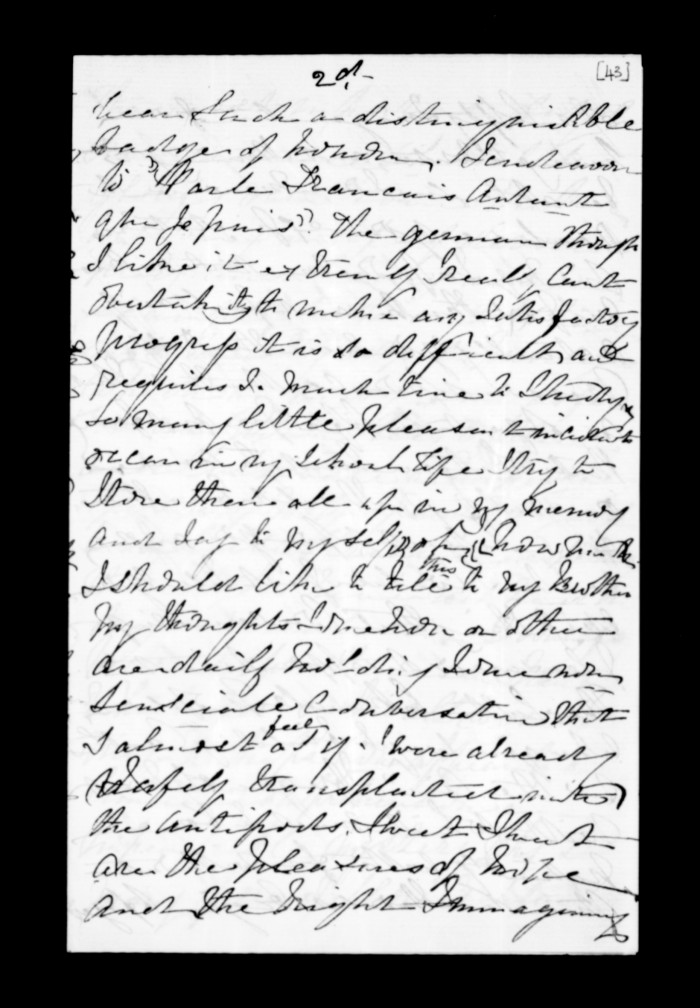 2d.
[43]
bear such a distinguishable
badge of honour. I endeavour
to "Parle Francais Autant
que Je puis". The german though
I like it extremely I really cant
undertake to make any satisfactory
progress it is so difficult and
requires so much time to study,
so many little pleasant incidents
occur in my School life I try to
Store them all up in my memory
and say to myself often, how much
I should like to tell this to my Brother
My thoughts somehow or other
are daily holding some
Conversation that
I almost feel as if I were already
safely transplanted into
the antipods. Sweet Sweet
are the pleasures of hope
and the bright Immaginings